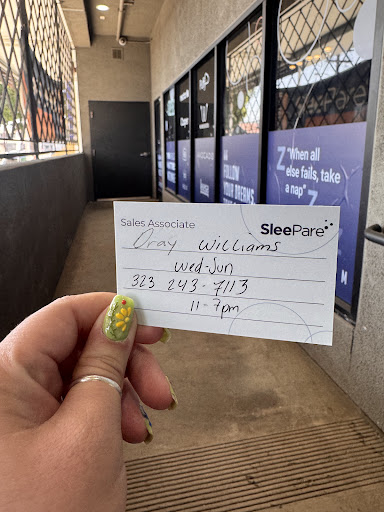 Sales Associate SleePare
Dray Williams
Wed-Sun
323 243-7113
11-7pm
"When all
else fails, take
a nap"
FOLLOW
YOUR DREAMS